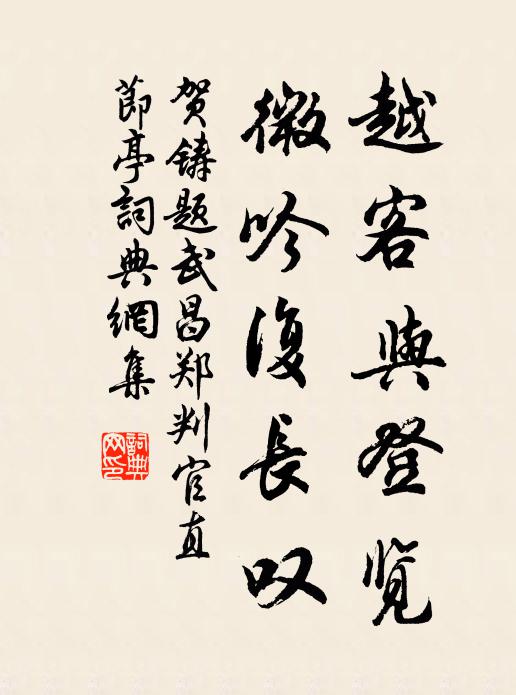 越客與登览
微吟復長叹
贺鑄题武昌郑判官直
節亭詞典網集
詞典
网印